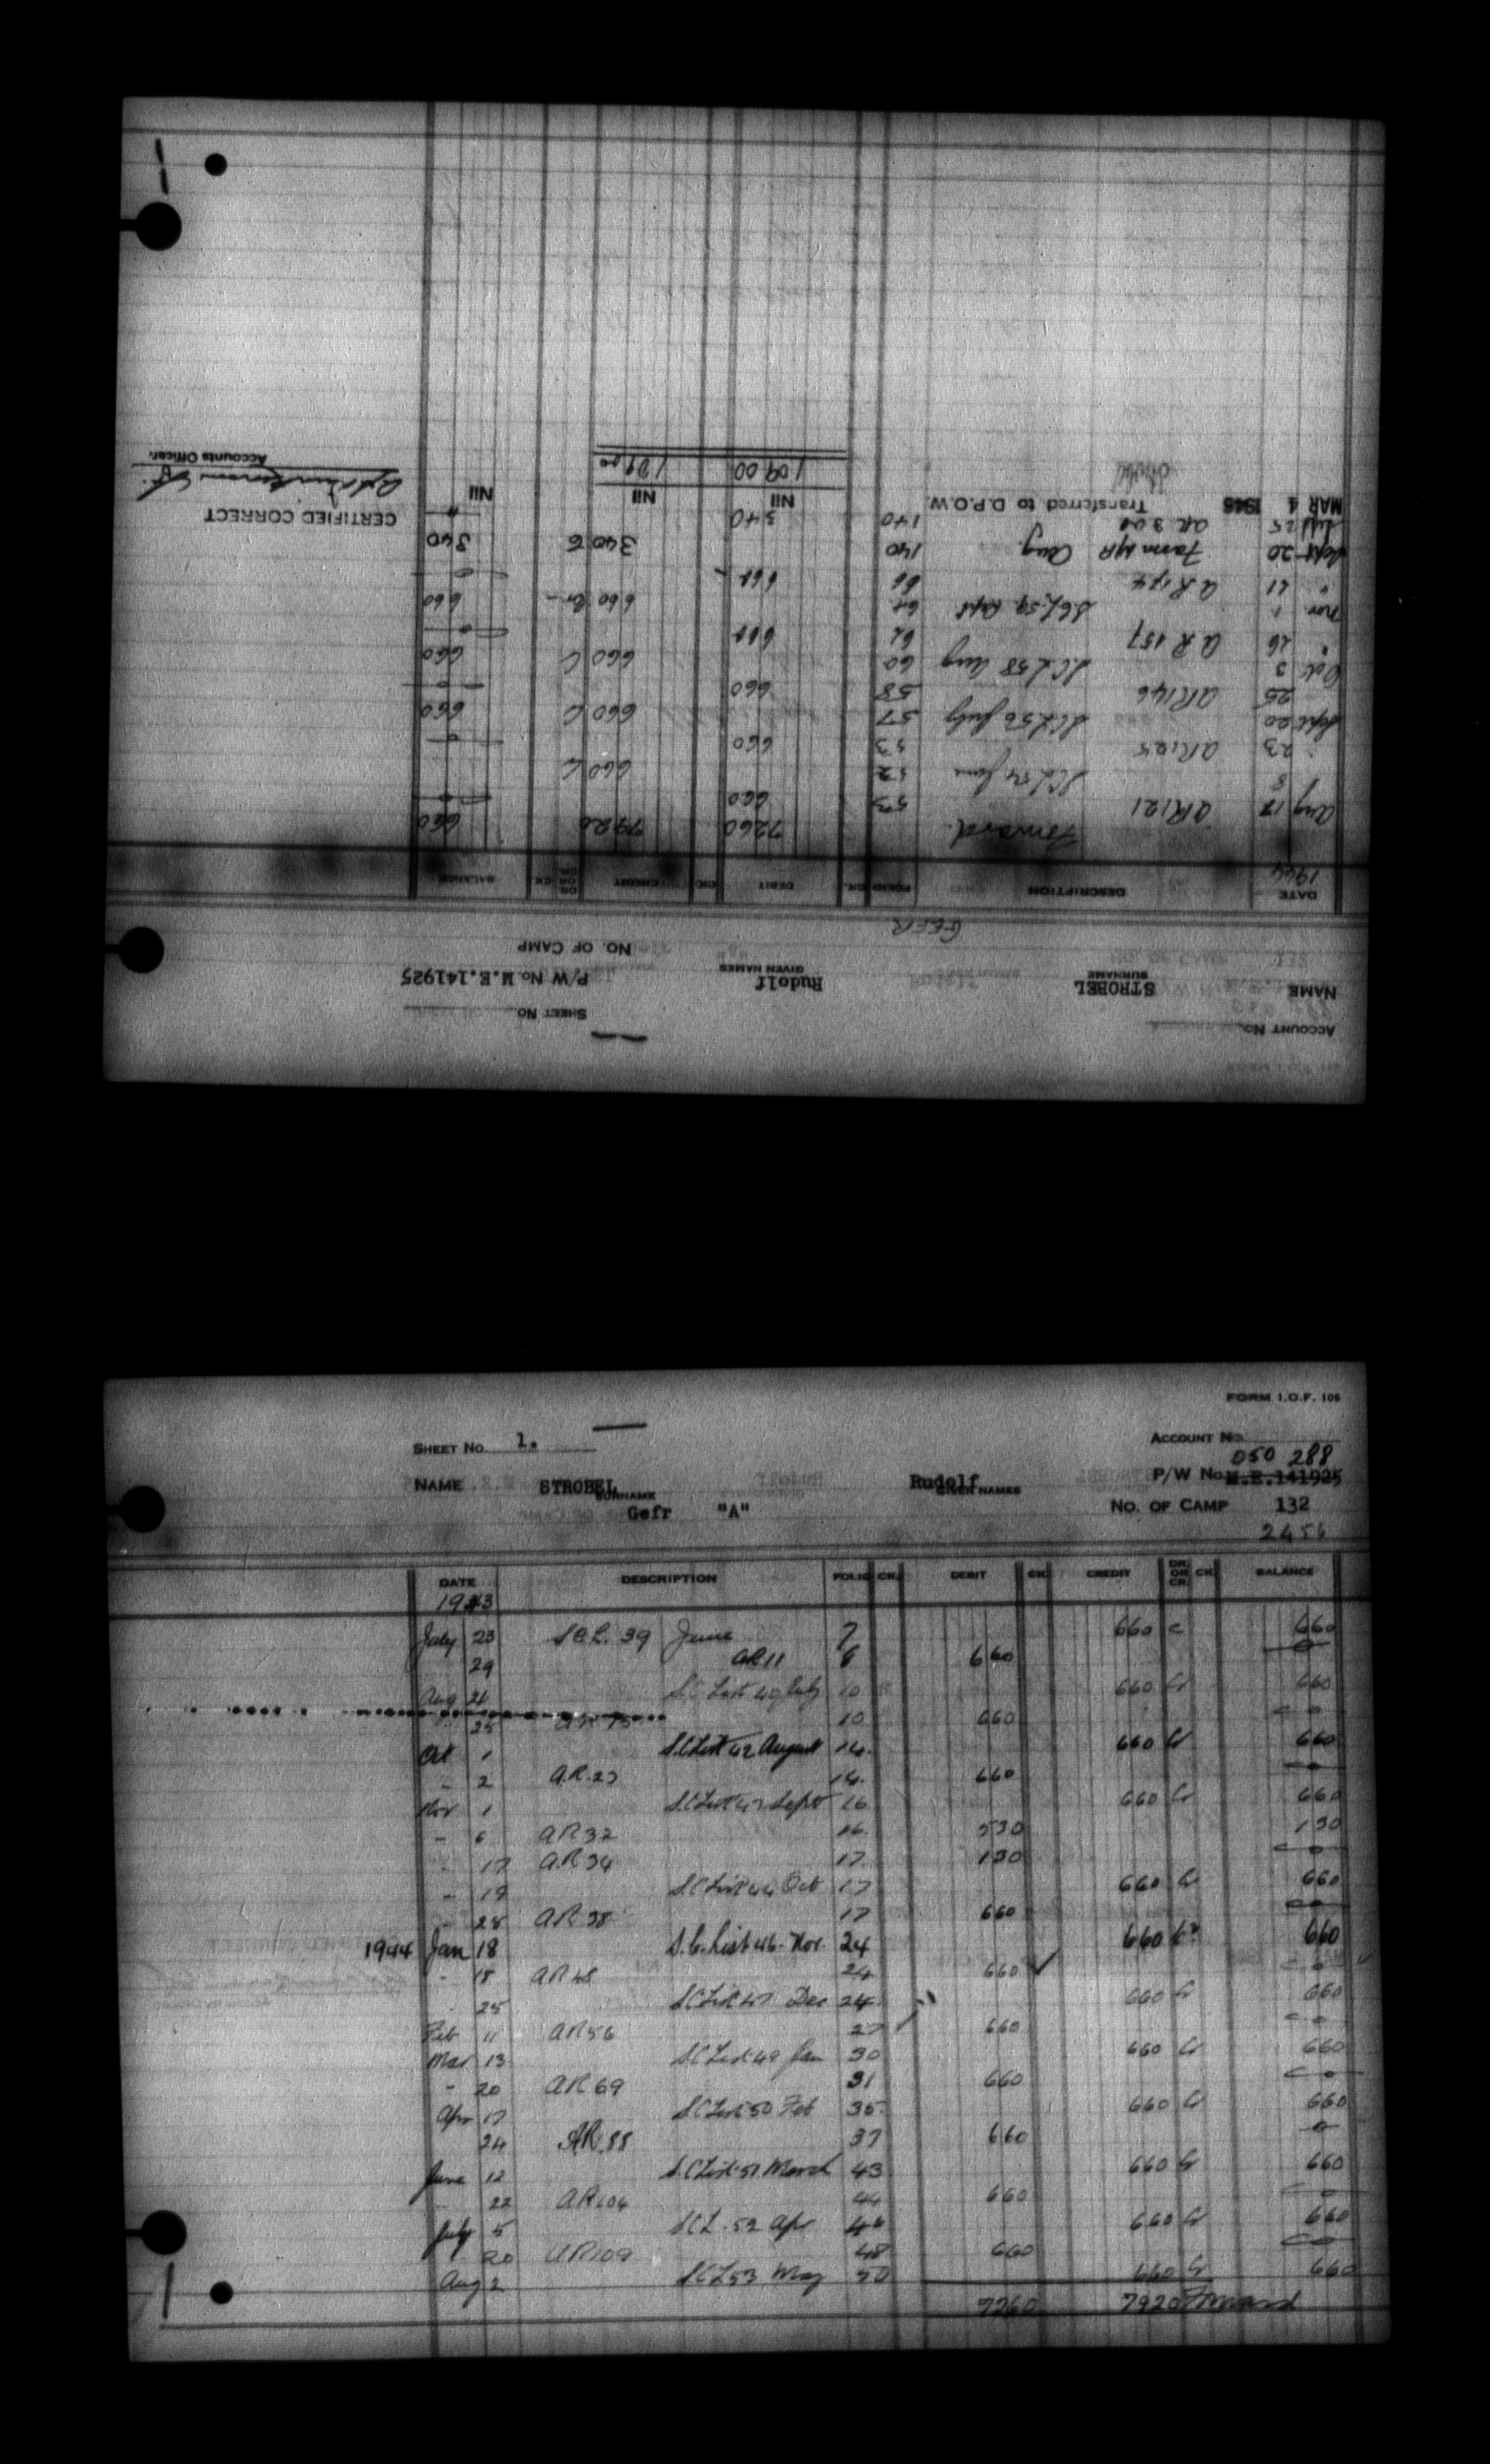 FORM I.O.F. 106
SHEET NO. 1. ACCOUNT NO.
050 288
NAME STROBEL Rudolf P/W No. M.E.141925
SURNAME GIVEN NAMES
Gefr "A" NO. OF CAMP 132
2456
DATE DESCRIPTION FOLIO CK. DEBIT CK. CREDIT DR. OR CR. CK. BALANCE
1943
July 23 S.C.L. 39 June 7 660 c 660
29 AR 11 8 660 0
Aug 21 S.C List 40 July 10 660 Cr 660
25 AR 15 10 660 0
Oct 1 S.C List 42 August 14 660 Cr 660
" 2 A.R. 27 14 660 0
Nov 1 S.C List 43 Sept 16 660 Cr 660
" 6 AR 32 16 530 130
" 17 A.R 34 17 130 0
" 19 S.C List 44 Oct 17 660 Cr 660
" 25 AR 38 17 660 0
1944 Jan 18 S.C. List 46. Nov. 24 660 Cr 660
" 18 AR 48 24 660 0
25 S.C List 47 Dec 24 660 Cr 660
Feb 11 AR 56 27 660 0
Mar 13 S.C List 49 Jan 30 660 Cr 660
" 20 AR 69 31 660 0
Apr 17 S.C List 50 Feb 35 660 Cr 660
24 AR. 88 37 660 0
June 12 S.C List 51 March 43 660 Cr 660
22 AR 104 44 660 0
July 5 S.C L. 52 Apr 46 660 Cr 660
20 AR 109 48 660 0
Aug 2 S.C L 53 May 50 660 Cr 660
7260 7920 Forward
ACCOUNT NO. SHEET NO.
NAME STROBEL Rudolf P/W No. M.E.141925
SURNAME GIVEN NAMES
NO. OF CAMP
GEFR
DATE DESCRIPTION FOLIO CK. DEBIT CK. CREDIT DR. OR CR. CK. BALANCE
1944
Forward. 7260 7920 660
Aug 17 AR 121 53 660 0
8 S.C L 54 June 52 660 C
" 23 AR 125 53 660 0
Sept 20 S.C L 56 July 57 660 C 660
25 AR 146 58 660 0
Oct 3 S.C L 58 Aug 60 660 C 660
" 26 AR 157 62 660 0
Nov 1 S.C L 59 Sept 64 660 Cr 660
" 11 AR 174 66 660 0
Sept 20 Farm Aug. 140 340 340
Sept 25 AR 140 340
MAR 4 1946 Transferred to D.P.O.W. Nil Nil Nil
109 00 109 00
CERTIFIED CORRECT
Accounts Officer.